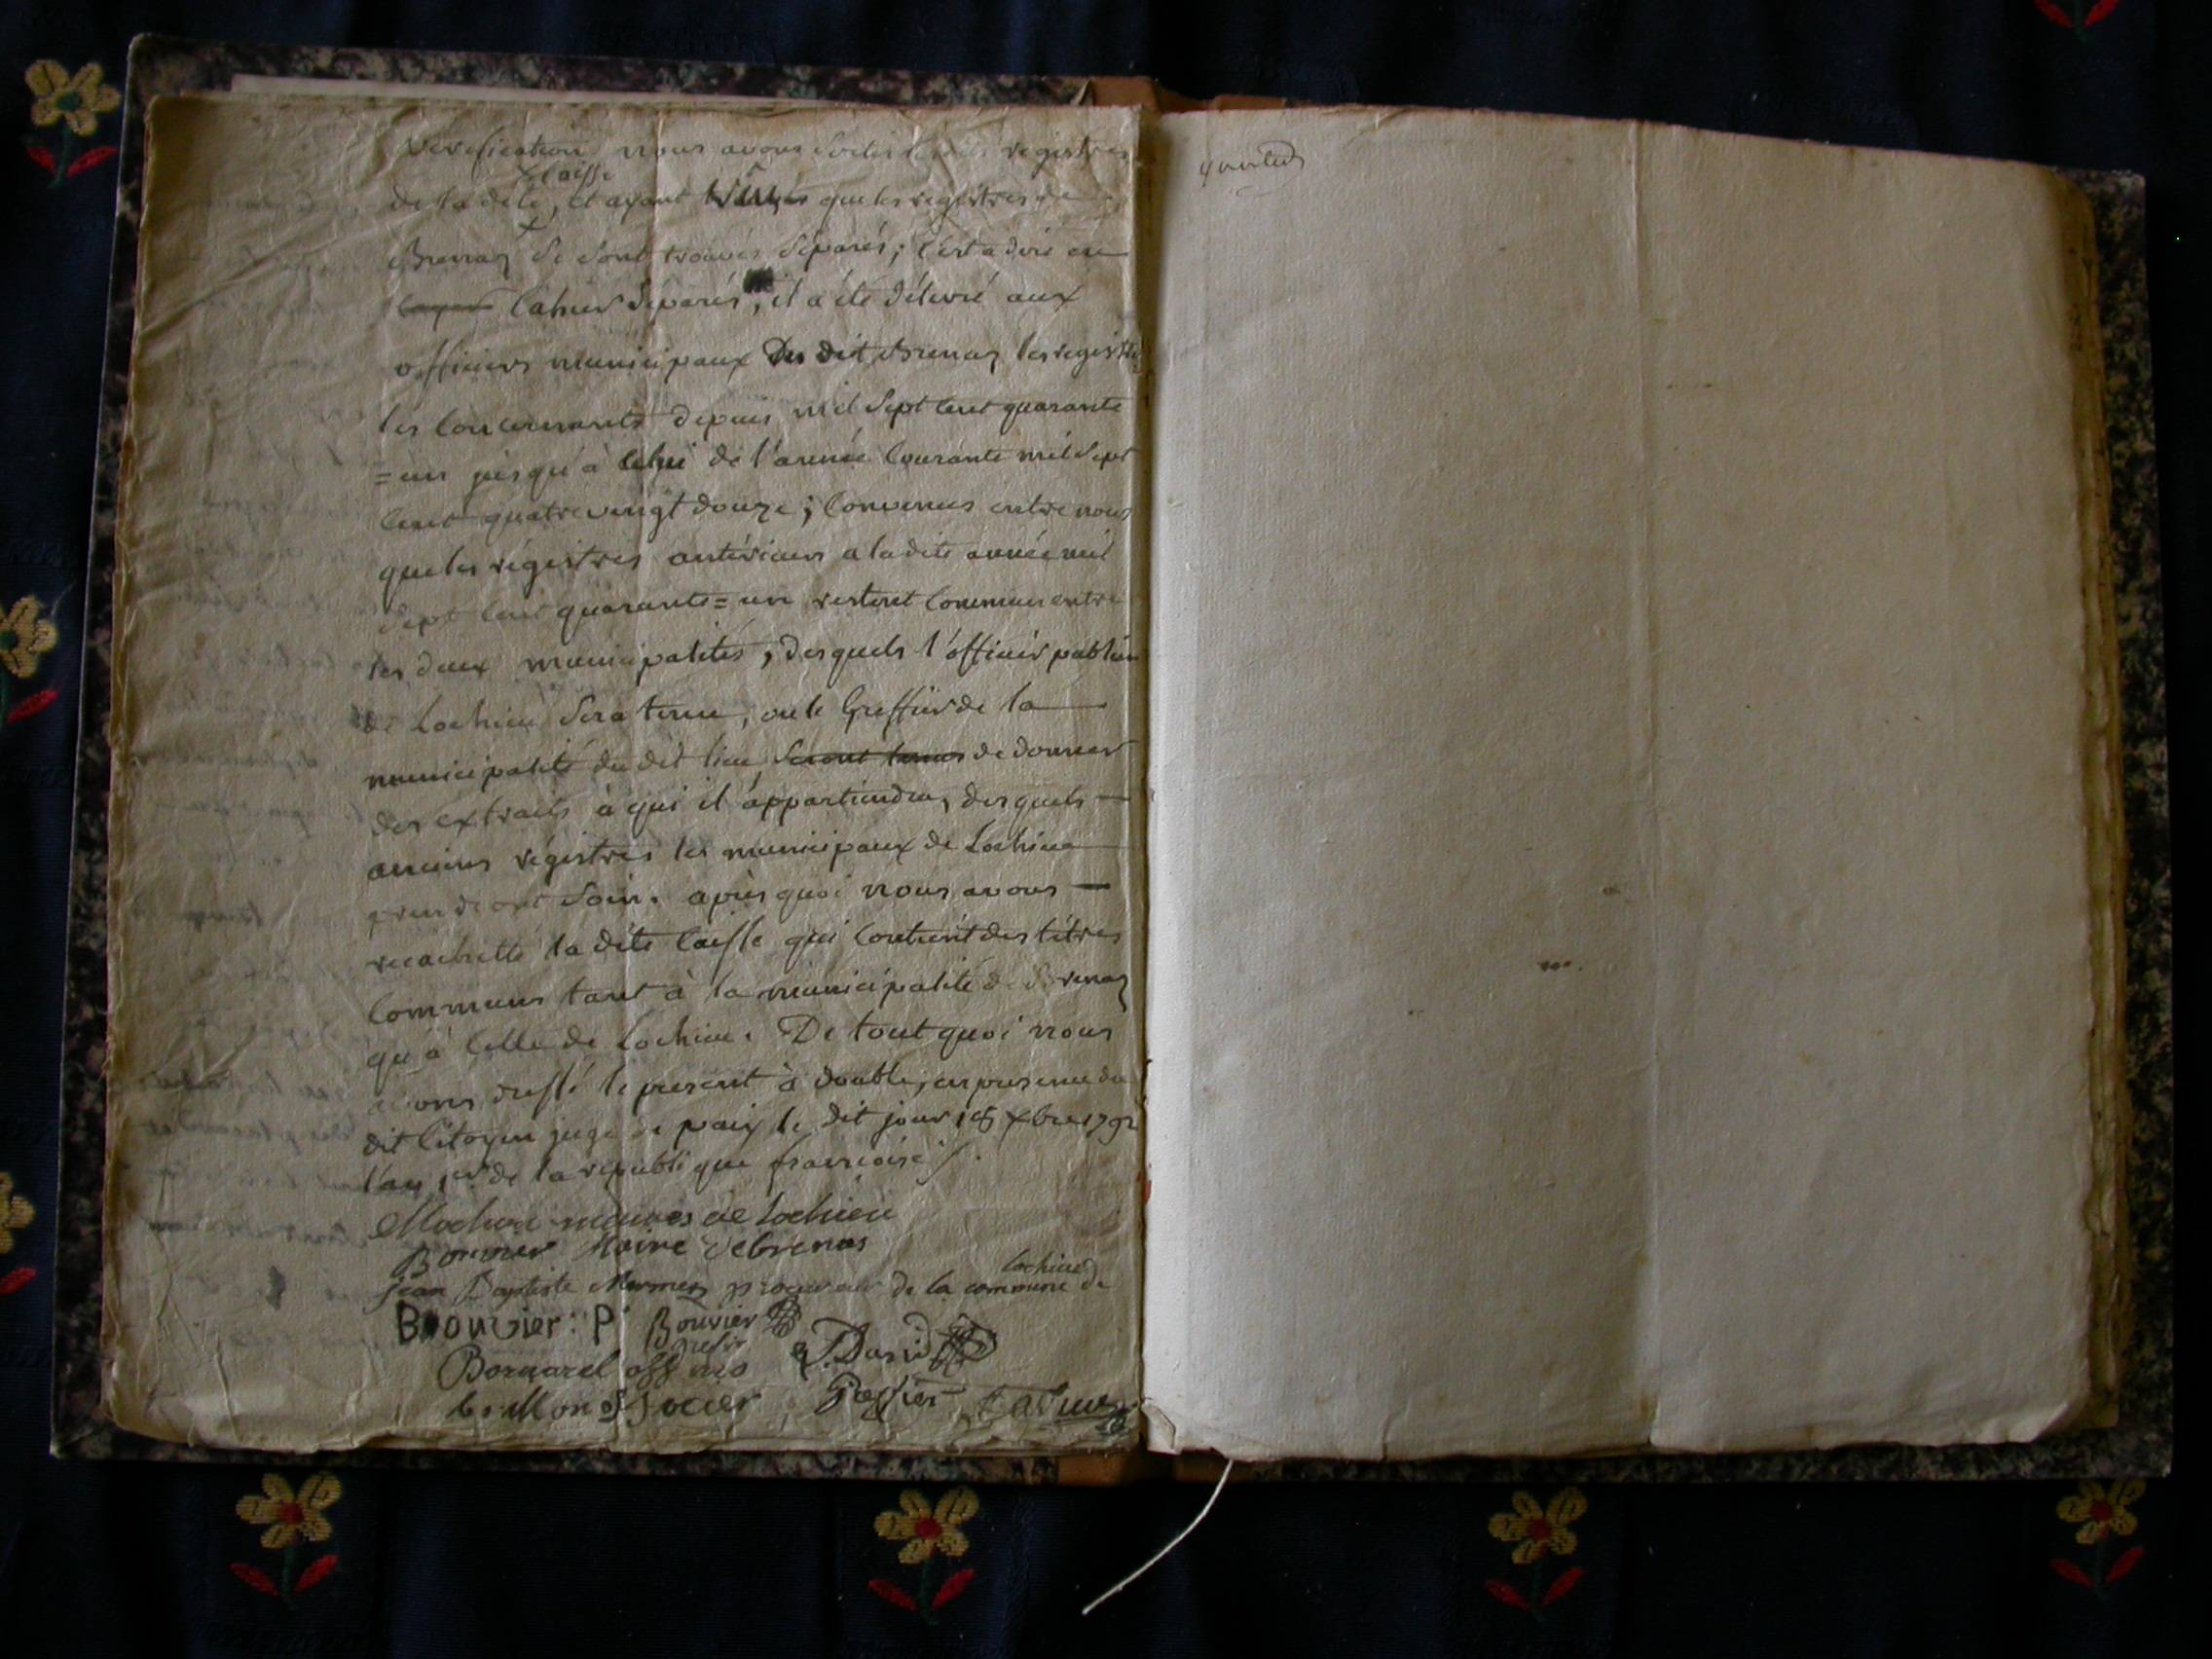 verification nous avons sortis lesdits registres
caisse
de la dite, et ayant vérifiés que les registres de
Brenaz se sont trouvés séparés; c'est a dire en
cahier séparés, il a été délivré aux
officiers municipaux du dit Brenaz les registres
les concernants depuis mil sept cent quarante
=un jusqu'à celui de l'année courante mil sept
cent quatre vingt douze; convenus entre nous
que les régistres antérieurs a la dite année mil
sept cent quarante=un restent communs entre
les deux municipalités, desquels l'officier public
de Lochieu sera tenu, ou le Greffier de la
municipalité du dit lieu seront tenus de donner
des extraits à qui il appartiendra, desquels
anciens régistres les municipaux de Lochieu
prendront soin. après quoi nous avons
recachetté la dite caisse qui contient des titres
communs tant à la municipalité de Brenaz
qu'à celle de Lochieu. De tout quoi nous
avons dressé le present à double, en presence du
dit citoyen juge de paix le dit jour 18 xbre 1792
l'an 1er de la republique francoise
maires de Lochieu
Bonnier Maire de brenas
Lochieu
jean Baptiste Mermez procureur de la commune de
Bouvier: P. Bouvier
David
Bornarel off
Tessier